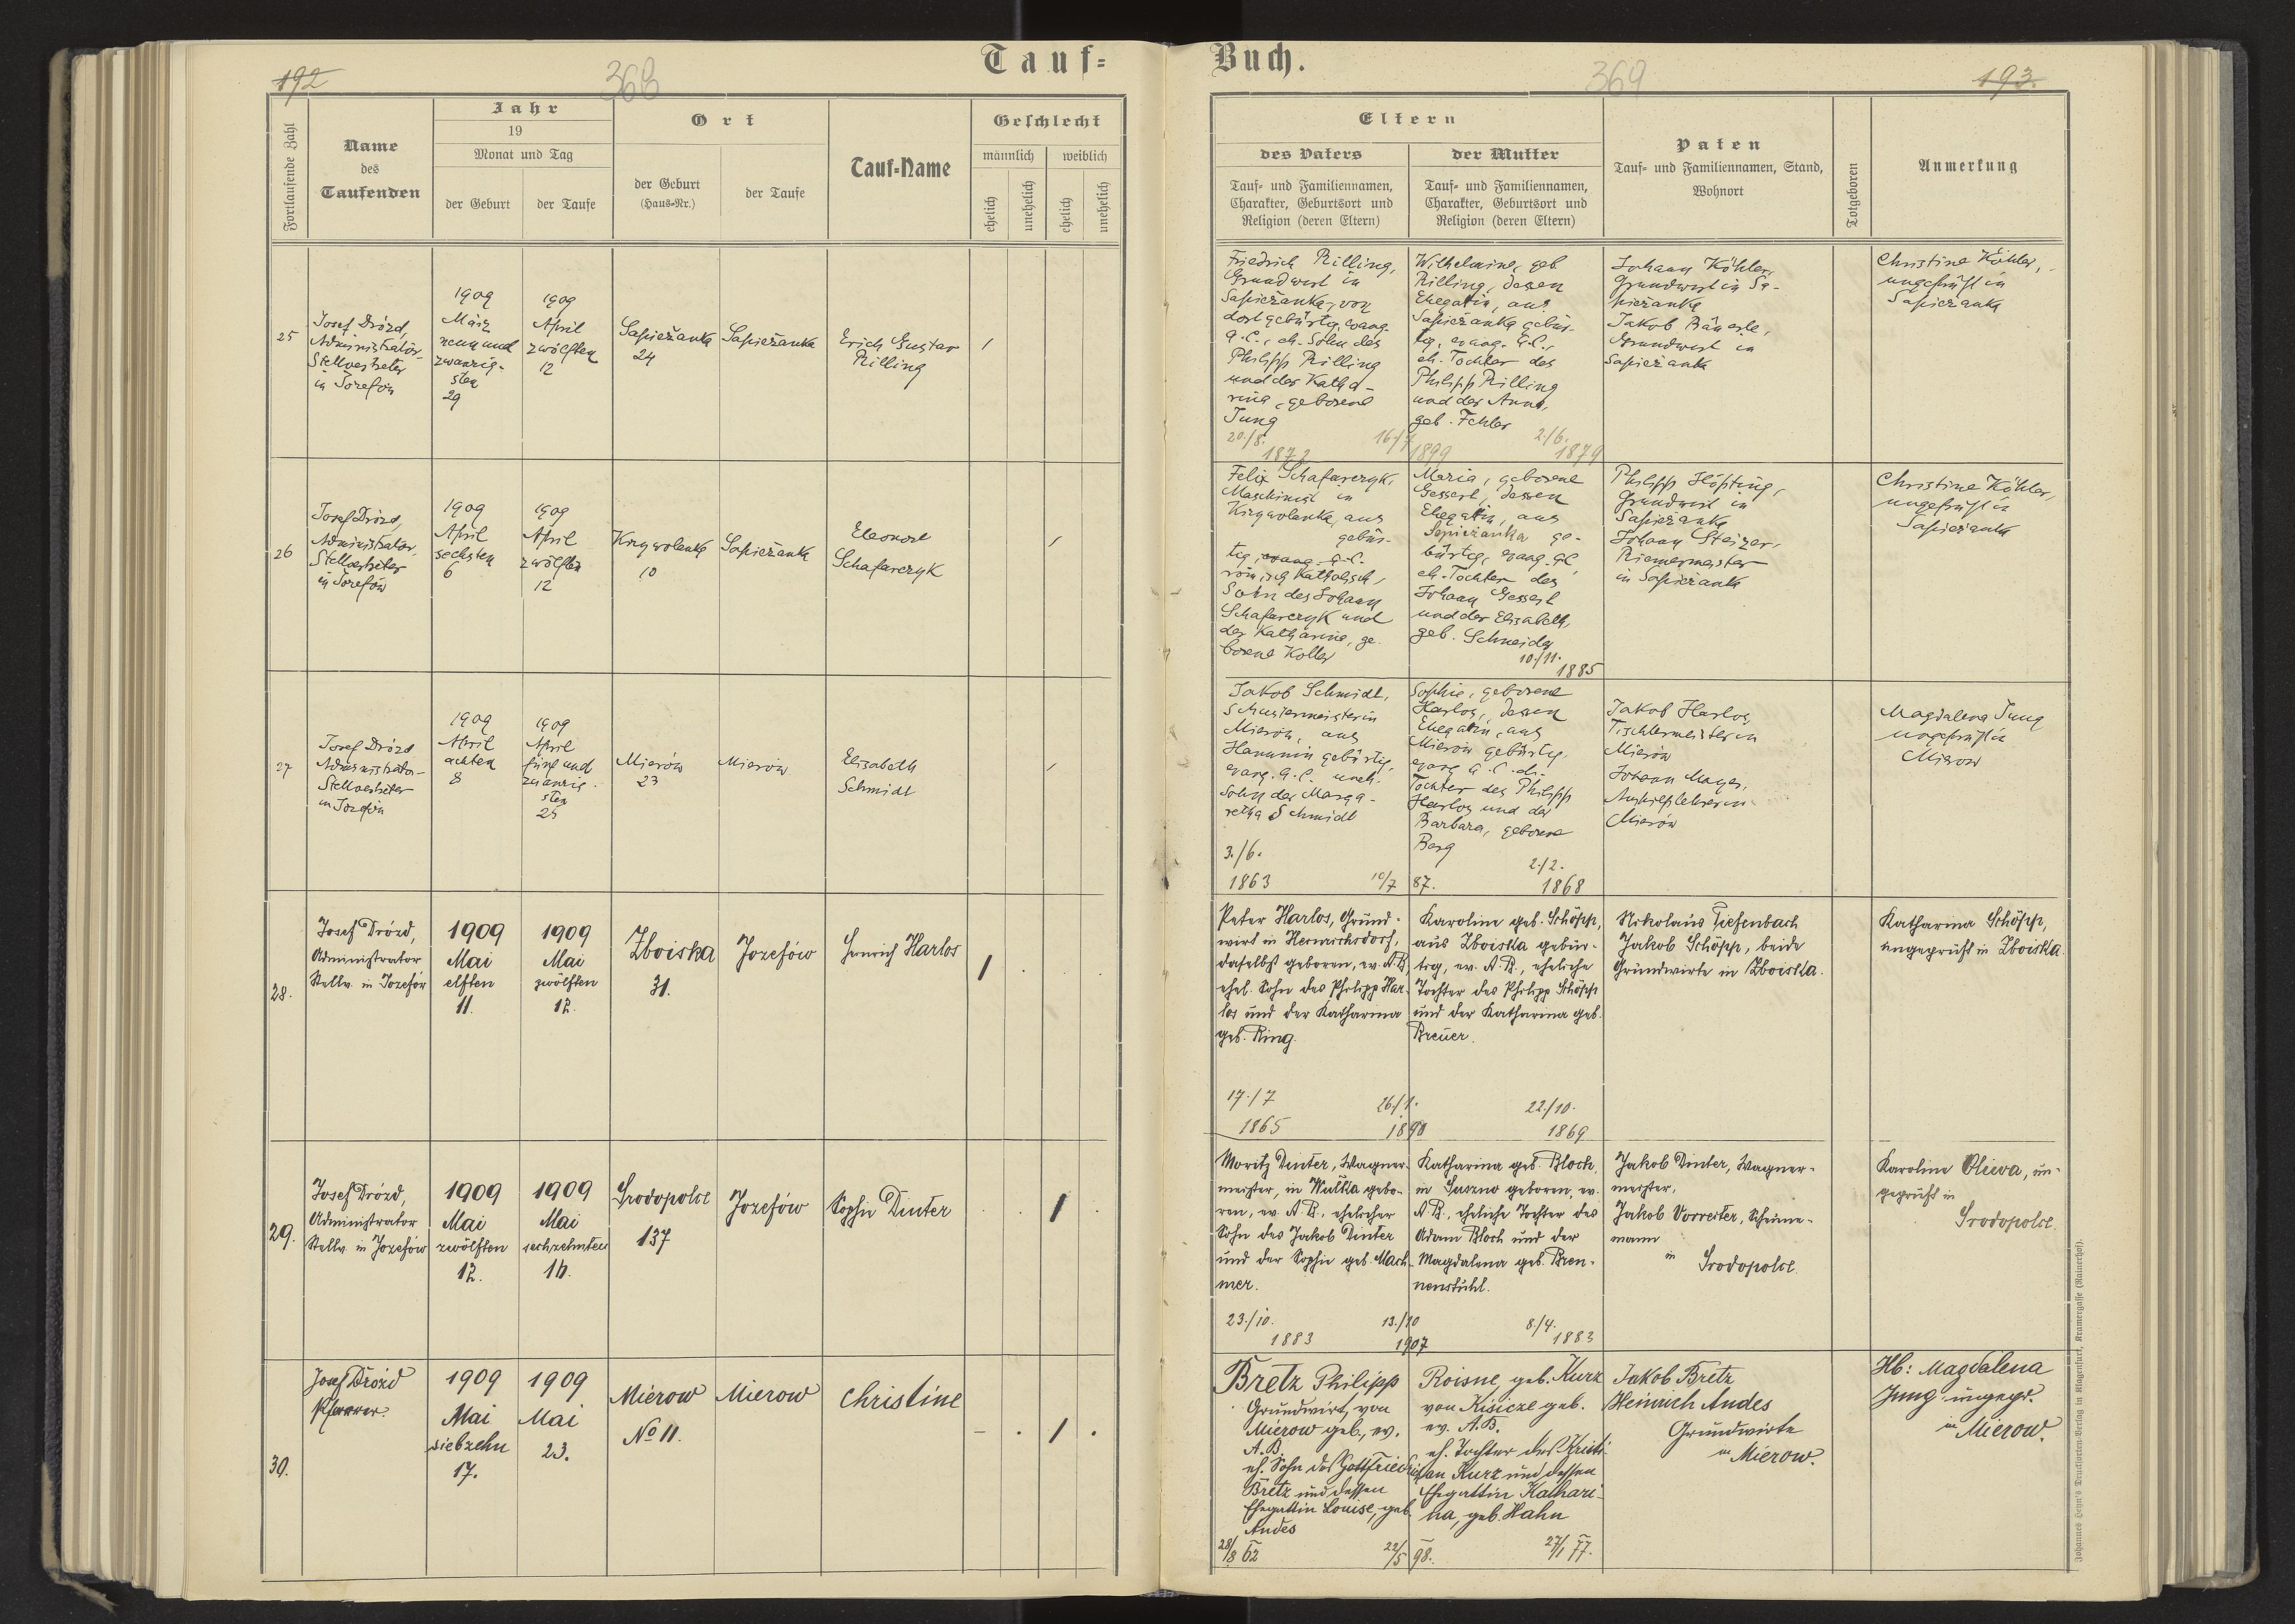 192
368
Tauf=
Fortlaufende Zahl
Name
des
Taufenden
Jahr
19
Monat und Tag
der Geburt
der Taufe
Ort
der Geburt
(Haus-Nr.)
der Taufe
Tauf-Name
Geschlecht
männlich
weiblich
ehelich
unehelich
ehelich
unehelich
25
Josef Drózd,
Administrator-
Stellvertreter
in Jozefów
1909
März
neunund
zwanzig-
sten
29
1909
April
zwölften
12
Sapieżanka
24
Sapieżanka
Erich Gustav
Rilling
/
26
Josef Drózd,
Administrator-
Stellvertreter
in Jozefów
1909
April
sechsten
6
1909
April
zwölften
12
Krzywolanka
10
Sapieżanka
Eleonore
Schafarczyk
/
27
Josef Drózd
Administrator-
Stellvertreter
in Jozefów
1909
April
achten
8
1909
April
fünfund
zwanzig-
sten
25
Mierów
23
Mierów
Elisabeth
Schmidt
/
28.
Josef Drózd,
Administrator
Stellv. in Jozefów
1909
Mai
elften
11.
1909
Mai
zwölften
12.
Zboiska
31.
Jozefów
Heinrich Harlos
/
29.
Josef Drózd,
Administrator
Stellv. in Jozefów
1909
Mai
zwölften
12.
1909
Mai
sechzehnten
16.
Srodopolce
137
Jozefów
Sophie Dinter
/
30.
Josef Drózd
Pfarrer.
1909
Mai
siebzehn
17.
1909
Mai
23.
Mierow
No 11.
Mierow
Christine
/
Buch.
369
193.
Eltern
des Vaters
Tauf- und Familiennamen,
Charakter, Geburtsort und
Religion (deren Eltern)
der Mutter
Tauf- und Familiennamen,
Charakter, Geburtsort und
Religion (deren Eltern)
Paten
Tauf- und Familiennamen, Stand,
Wohnort
Totgeboren
Anmerkung
Friedrich Rilling,
Grundwirt in
Sapieżanka, von
dort gebürtig, evang.
A.C., eh. Sohn des
Philipp Rilling
und der Katha-
rina, geborene
Jung
20./8.
1872
16./7
1899
Wilhelmine, geb.
Rilling, dessen
Ehegatin, aus
Sapieżanka gebür-
tig, evang. A.C.,
eh. Tochter des
Philipp Rilling
und der Anna,
geb. Fehler
2./6.
1879
Johann Köhler,
Grundwirt in Sa-
pieżanka
Jakob Bäuerle,
Grundwirt in
Sapieżanka
Christine Köhler,
ungeprüft in
Sapieżanka
Felix Schafarczyk,
Maschinist in
Krzywolanka, aus
gebür-
tig, evang. A.C.
römisch Katholisch,
Sohn des Johann
Schafarczyk und
der Katharina, ge-
borene Koller
Maria, geborene
Gessert, dessen
Ehegatin, aus
Sapieżanka ge-
bürtig, evang. A.C.
eh. Tochter des
Johann Gessert
und der Elisabeth,
geb. Schneider
10./11.
1885
Philipp Höpting,
Grundwirt in
Sapieżanka
Johann Steizer,
Riemermeister
in Sapieżanka
Christine Köhler,
ungeprüft in
Sapieżanka
Jakob Schmidt,
Schustermeister in
Mierów, aus
Hanunin gebürtig,
evang. A.C. uneh.
Sohn der Marga-
retha Schmidt
3./6.
1863
10/7 87.
Sophie, geborene
Harlos, dessen
Ehegatin, aus
Mierów gebürtig,
evang A.C. eh.
Tochter des Philipp
Harlos und der
Barbara, geborene
Berg
2./2.
1868
Jakob Harlos,
Tischlermeister in
Mierów
Johann Mayer,
Aushilfslehrer in
Mierów
Magdalena Jung
ungeprüft in
Mierow
Peter Harlos, Grund-
wirt in Heinrichsdorf,
daselbst geboren, ev. A.B.,
ehel. Sohn des Philipp Har-
los und der Katharina
geb. Ring.
17./7
1865
26./1.
1890
Karoline geb. Schöpp,
aus Zboiska gebür-
tig, ev. A.B., eheliche
Tochter des Philipp Schöpp
und der Katharina geb.
Breuer.
22./10.
1869
Nikolaus Tiefenbach
Jakob Schöpp, beide
Grundwirte in Zboiska.
Katharina Schöpp,
ungeprüft in Zboiska.
Moritz Dinter, Wagner-
meister, in Wulka gebo-
ren, ev. A.B., ehelicher
Sohn des Jakob Dinter
und der Sophie geb. Mach-
mer.
23./10.
1883
13./10
1907
Katharina geb. Bloch,
in Suszno geboren, ev.
A.B., eheliche Tochter des
Adam Bloch und der
Magdalena geb. Bren-
nenstuhl.
8./4.
1883
Jakob Dinter, Wagner-
meister,
Jakob Vorreiter, Scheine-
mann
in Srodopolce.
Karoline Oliwa, un-
geprüft in
Srodopolce.
Bretz Philipp
Grundwirt, von
Mierow geb., ev.
A.B.
eh. Sohn des Gottfried
Bretz und dessen
Ehegattin Louise, geb.
Andes
28/8 62
22/5 98.
Roisne geb. Kurz
von Kisicze geb.
ev. A.B.
eh. Tochter des Kristi-
an Kurz und dessen
Ehegattin Kathari-
na, geb. Hahn
27/1 77.
Jakob Bretz
Heinrich Andes
Grundwirte
in Mierow.
Hb: Magdalena
Jung ungepr.
in Mierow.
Johannes Heyn's Drucksorten-Verlag in Klagenfurt, Kramergasse (Rainerhof).